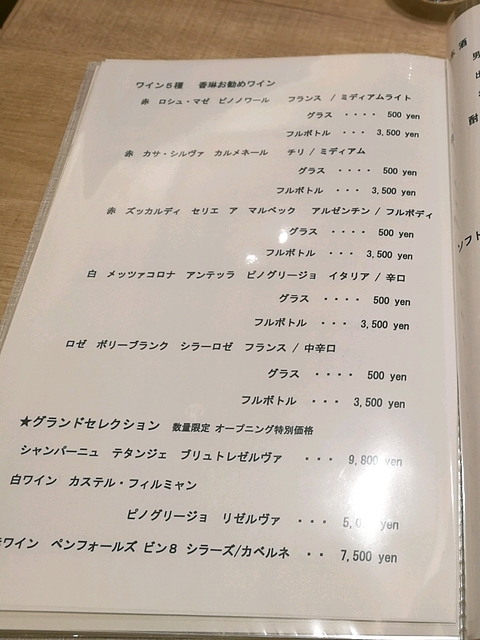 ワイン5種 香琳お勧めワイン
赤 ロシュ・マゼ ピノノワール フランス / ミディアムライト
グラス ・・・・ 500 yen
フルボトル ・・・ 3,500 yen
赤 カサ・シルヴァ カルメネール チリ / ミディアム
グラス ・・・・ 500 yen
フルボトル ・・・ 3,500 yen
赤 ズッカルディ セリエ ア マルベック アルゼンチン / フルボディ
グラス ・・・・ 500 yen
フルボトル ・・・ 3,500 yen
白 メッツァコロナ アンテッラ ピノグリージョ イタリア / 辛口
グラス ・・・・ 500 yen
フルボトル ・・・ 3,500 yen
ロゼ ボリーブランク シラーロゼ フランス / 中辛口
グラス ・・・・ 500 yen
フルボトル ・・・ 3,500 yen
★グランドセレクション 数量限定 オープニング特別価格
シャンパーニュ テタンジェ ブリュトレゼルヴァ ・・・ 9,800 yen
白ワイン カステル・フィルミャン
ピノグリージョ リゼルヴァ ・・・ yen
ワイン ペンフォールズ ビン8 シラーズ/カベルネ ・・ 7,500 yen
酒
ソフト